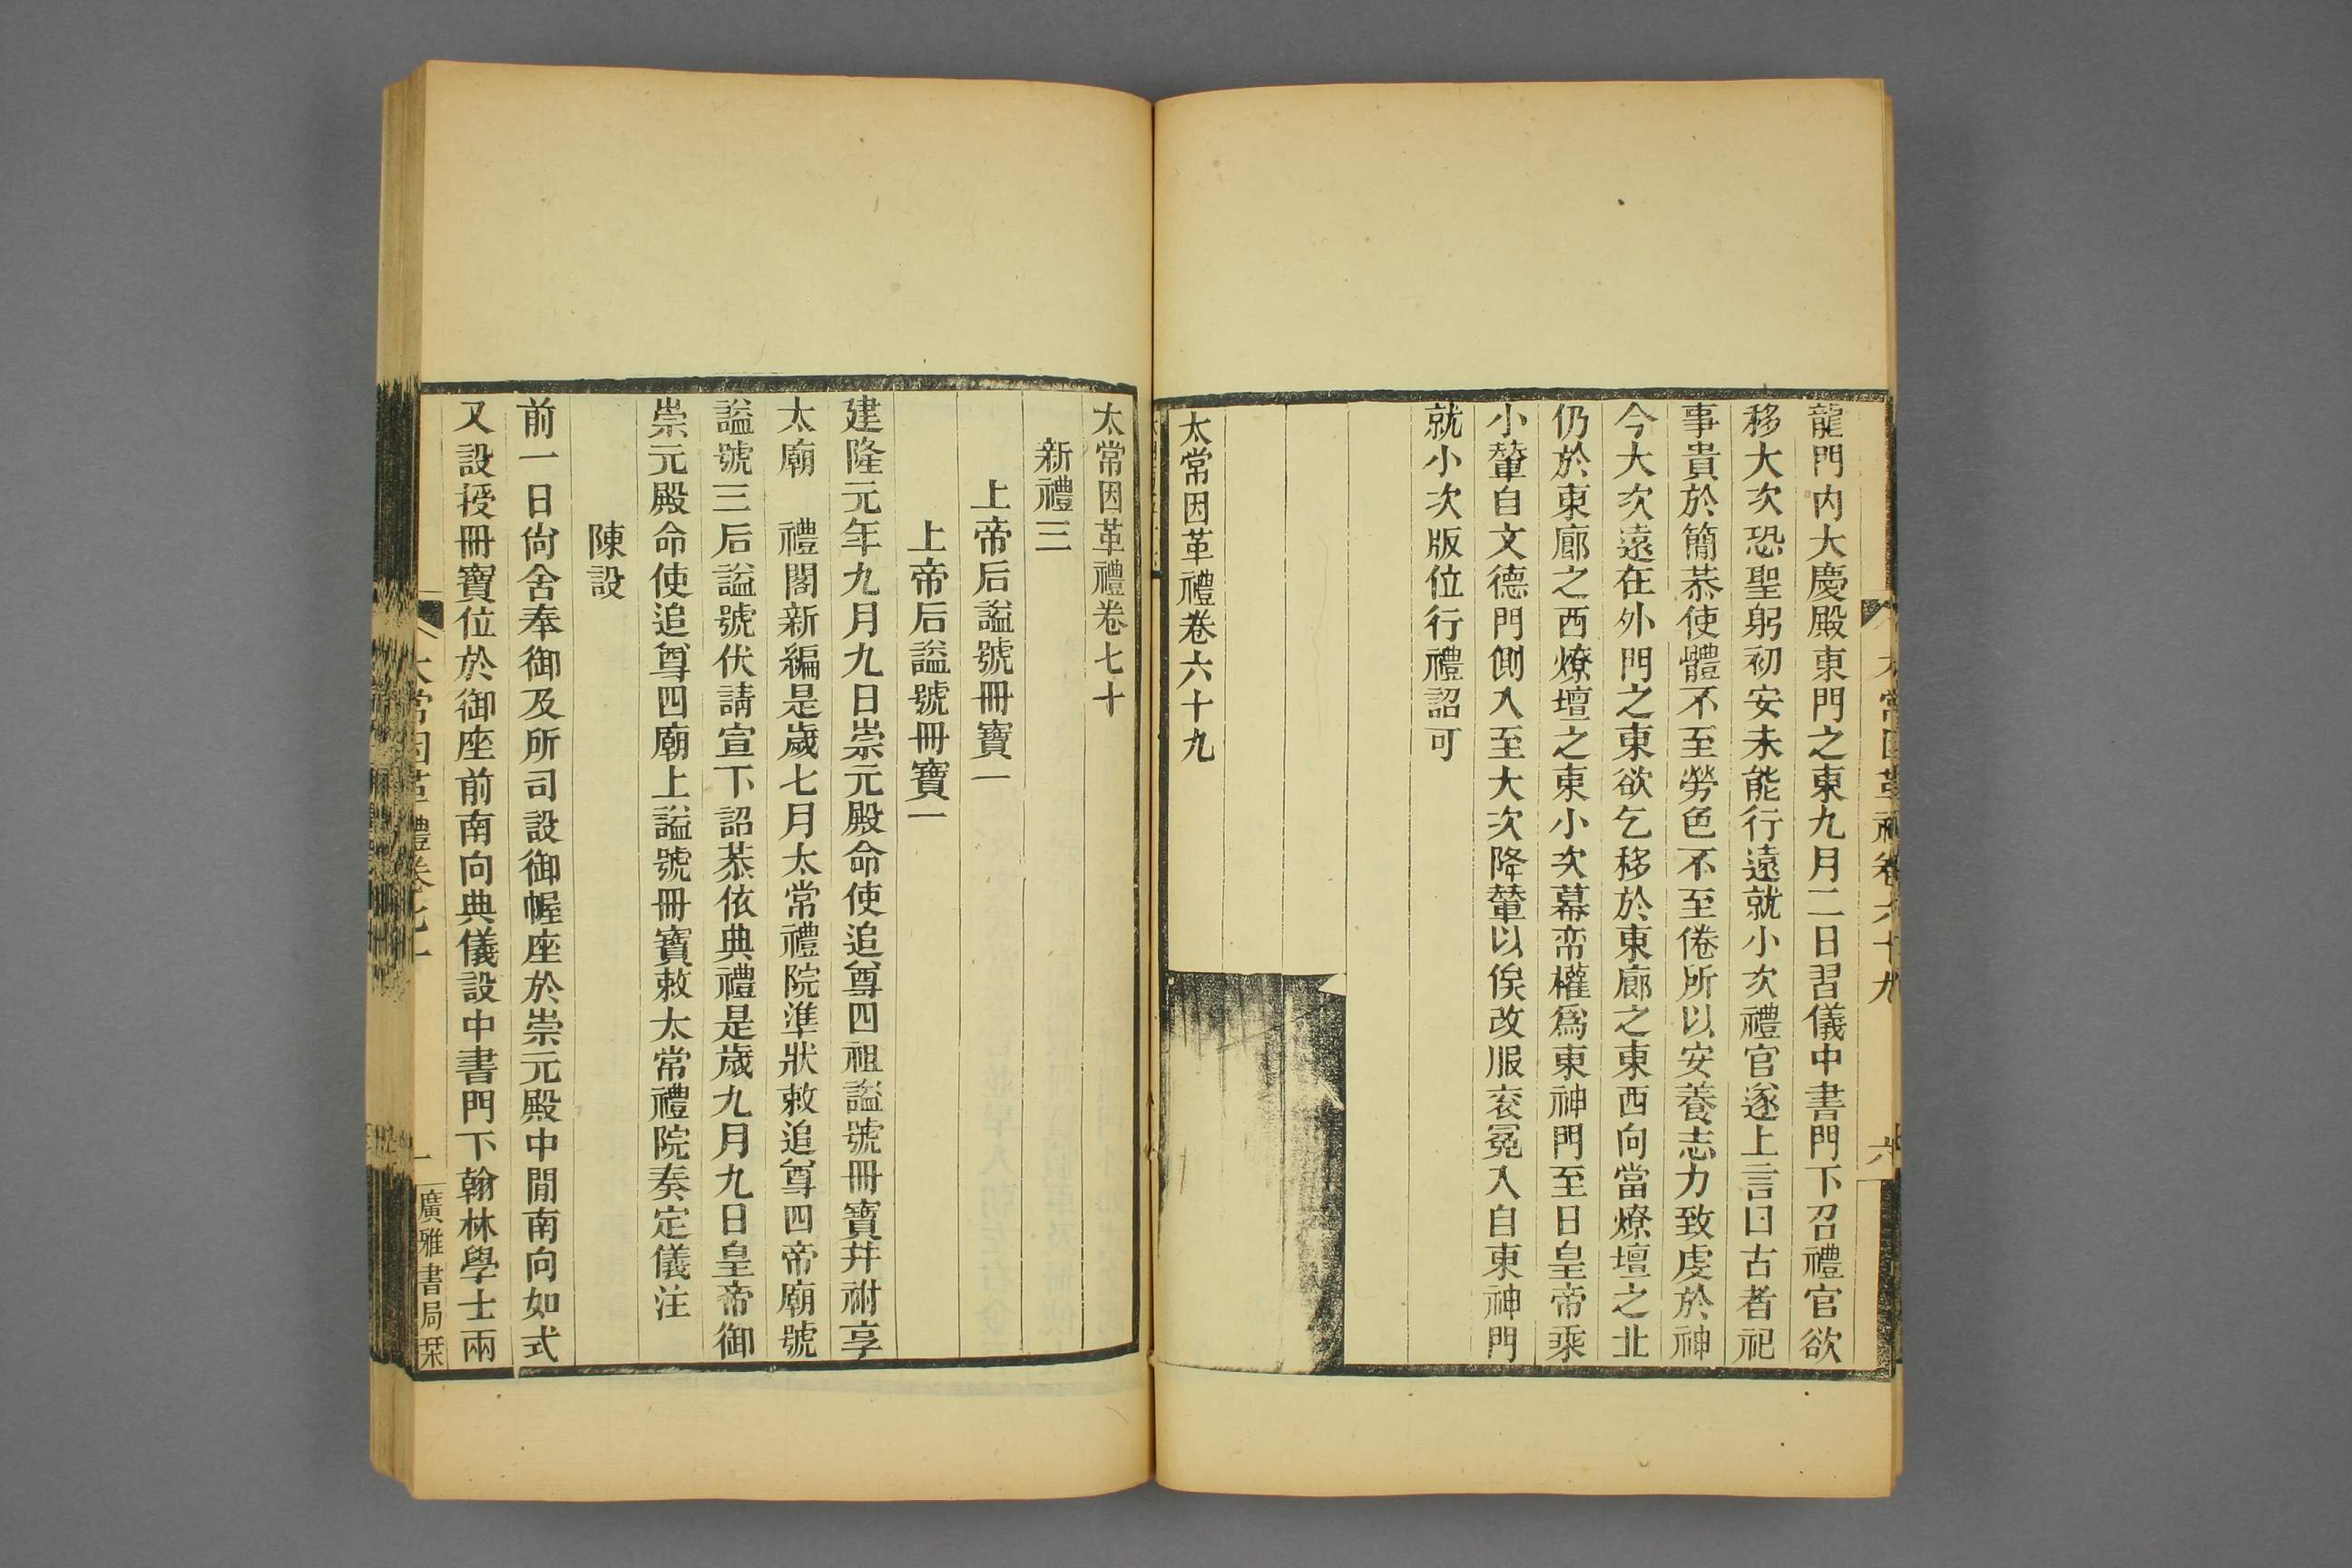 太常因革禮卷六十九
六
龍門內大慶殿東門之東九月二日習儀中書門下召禮官欲
移大次恐聖躬初安未能行遠就小次禮官遂上言曰古者祀
事貴於簡恭使體不至勞色不至倦所以安養志力致虔於神
今大次遠在外門之東欲乞移於東廊之東西向當燎壇之北
仍於東廊之西燎壇之東小次幕帟權爲東神門至日皇帝乘
小輦自文德門側入至大次降輦以俟改服衮冕入自東神門
就小次版位行禮詔可
太常因革禮卷六十九
太常因革禮卷七十
新禮三
上帝后謚號冊寶一
上帝后謚號冊寶一
建隆元年九月九日崇元殿命使追尊四祖謚號冊寶幷祔享
太廟 禮閣新編是歲七月太常禮院準狀敕追尊四帝廟號
謚號三后謚號伏請宣下詔恭依典禮是歲九月九日皇帝御
崇元殿命使追尊四廟上謚號冊寶敕太常禮院奏定儀注
陳設
前一日尙舍奉御及所司設御幄座於崇元殿中閒南向如式
又設授冊寶位於御座前南向典儀設中書門下翰林學士兩
太常因革禮卷七十
一
廣雅書局栞